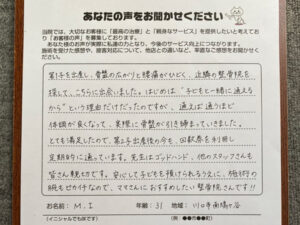 あなたの声をお聞かせください
当院では、大切なお客様に「最高の治療」と「親身なサービス」を提供したいと考えており「お客様の声」を募集しております。
あなた様のお声が実際に私達の力となり、今後のサービス向上につながります。
施術を受けた感想や、接客対応について、他店との違いなど、率直なご感想をお聞かせください。
第1子を出産し、骨盤の広がりと腰痛がひどく、近隣の整骨院を
探して、こちらに出会いました。はじめは“子どもと一緒に通える
から”という理由だけだったのですが、通えば通うほど
体調が良くなって、実際に骨盤が引き締まっていきました。
とても満足したので、第2子出産後の今も、回数券を利用し
定期的に通っています。先生はゴッドハンド、他のスタッフさんも
皆さん親切です。安心して子どもを預けられる上に、施術の
腕もピカイチなので、ママさんにおすすめしたい整骨院さんです!!
お名前: M.I 年齢: 31 地域: 川口市南鳩ヶ谷
(イニシャルでもOKです) (例:●●市●●町)